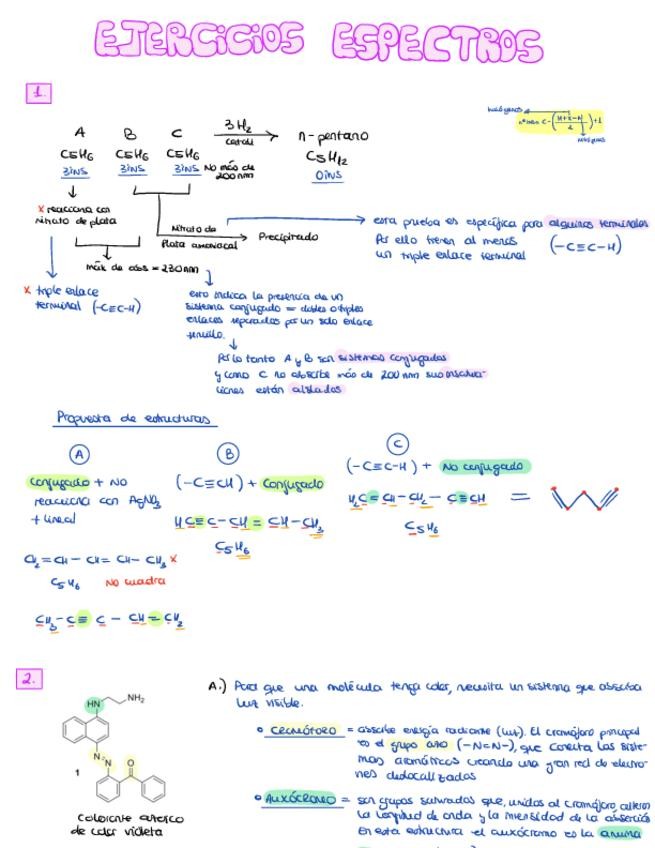 EJERCICIOS ESPECTROS
1.
A B C 3H₂ n-pentano
C5H6 C5H6 C5H6 C5H12
3ins 3ins 3ins No más de 200nm 0ins
x reacciona con
Nitrato de plata
Nitrato de
Plata amoniacal
Precipitado
esta prueba es específica para alquinos terminales
Por ello tienen al menos
un triple enlace terminal
(-C≡C-H)
máx de abs = 230nm
x triple enlace
terminal (-C≡C-H)
esto indica la presencia de un
sistema conjugado = dobles o triples
enlaces separados por un solo enlace
sencillo.
Por lo tanto A y B son sistemas conjugados
y como C no absorbe más de 200 nm sus insatura-
ciones están aisladas
Propuesta de estructuras
A
conjugado + NO
reacciona con AgNO3
+ lineal
CH₂=CH-CH=CH-CH₃ x
C5H6 No cuadra
CH₃-C≡C-CH=CH₂
B
(-C≡CH) + Conjugado
HC≡C-CH=CH-CH₃
C5H6
C
(-C≡C-H) + No conjugado
H₂C=CH-CH₂-C≡CH =
C5H6
2.
HN NH₂
N=N O
1
colorante azoico
de color violeta
A.) Para que una molécula tenga color, necesita un sistema que absorba
luz visible.
CROMÓFORO = absorbe energía radiante (luz). El cromóforo principal
es el grupo azo (-N=N-), que conecta los siste-
mas aromáticos creando una gran red de electro-
nes deslocalizados
AUXÓCROMO = son grupos saturados que, unidos al cromóforo, alteran
la longitud de onda y la intensidad de la absorción
En esta estructura el auxócromo es la amina